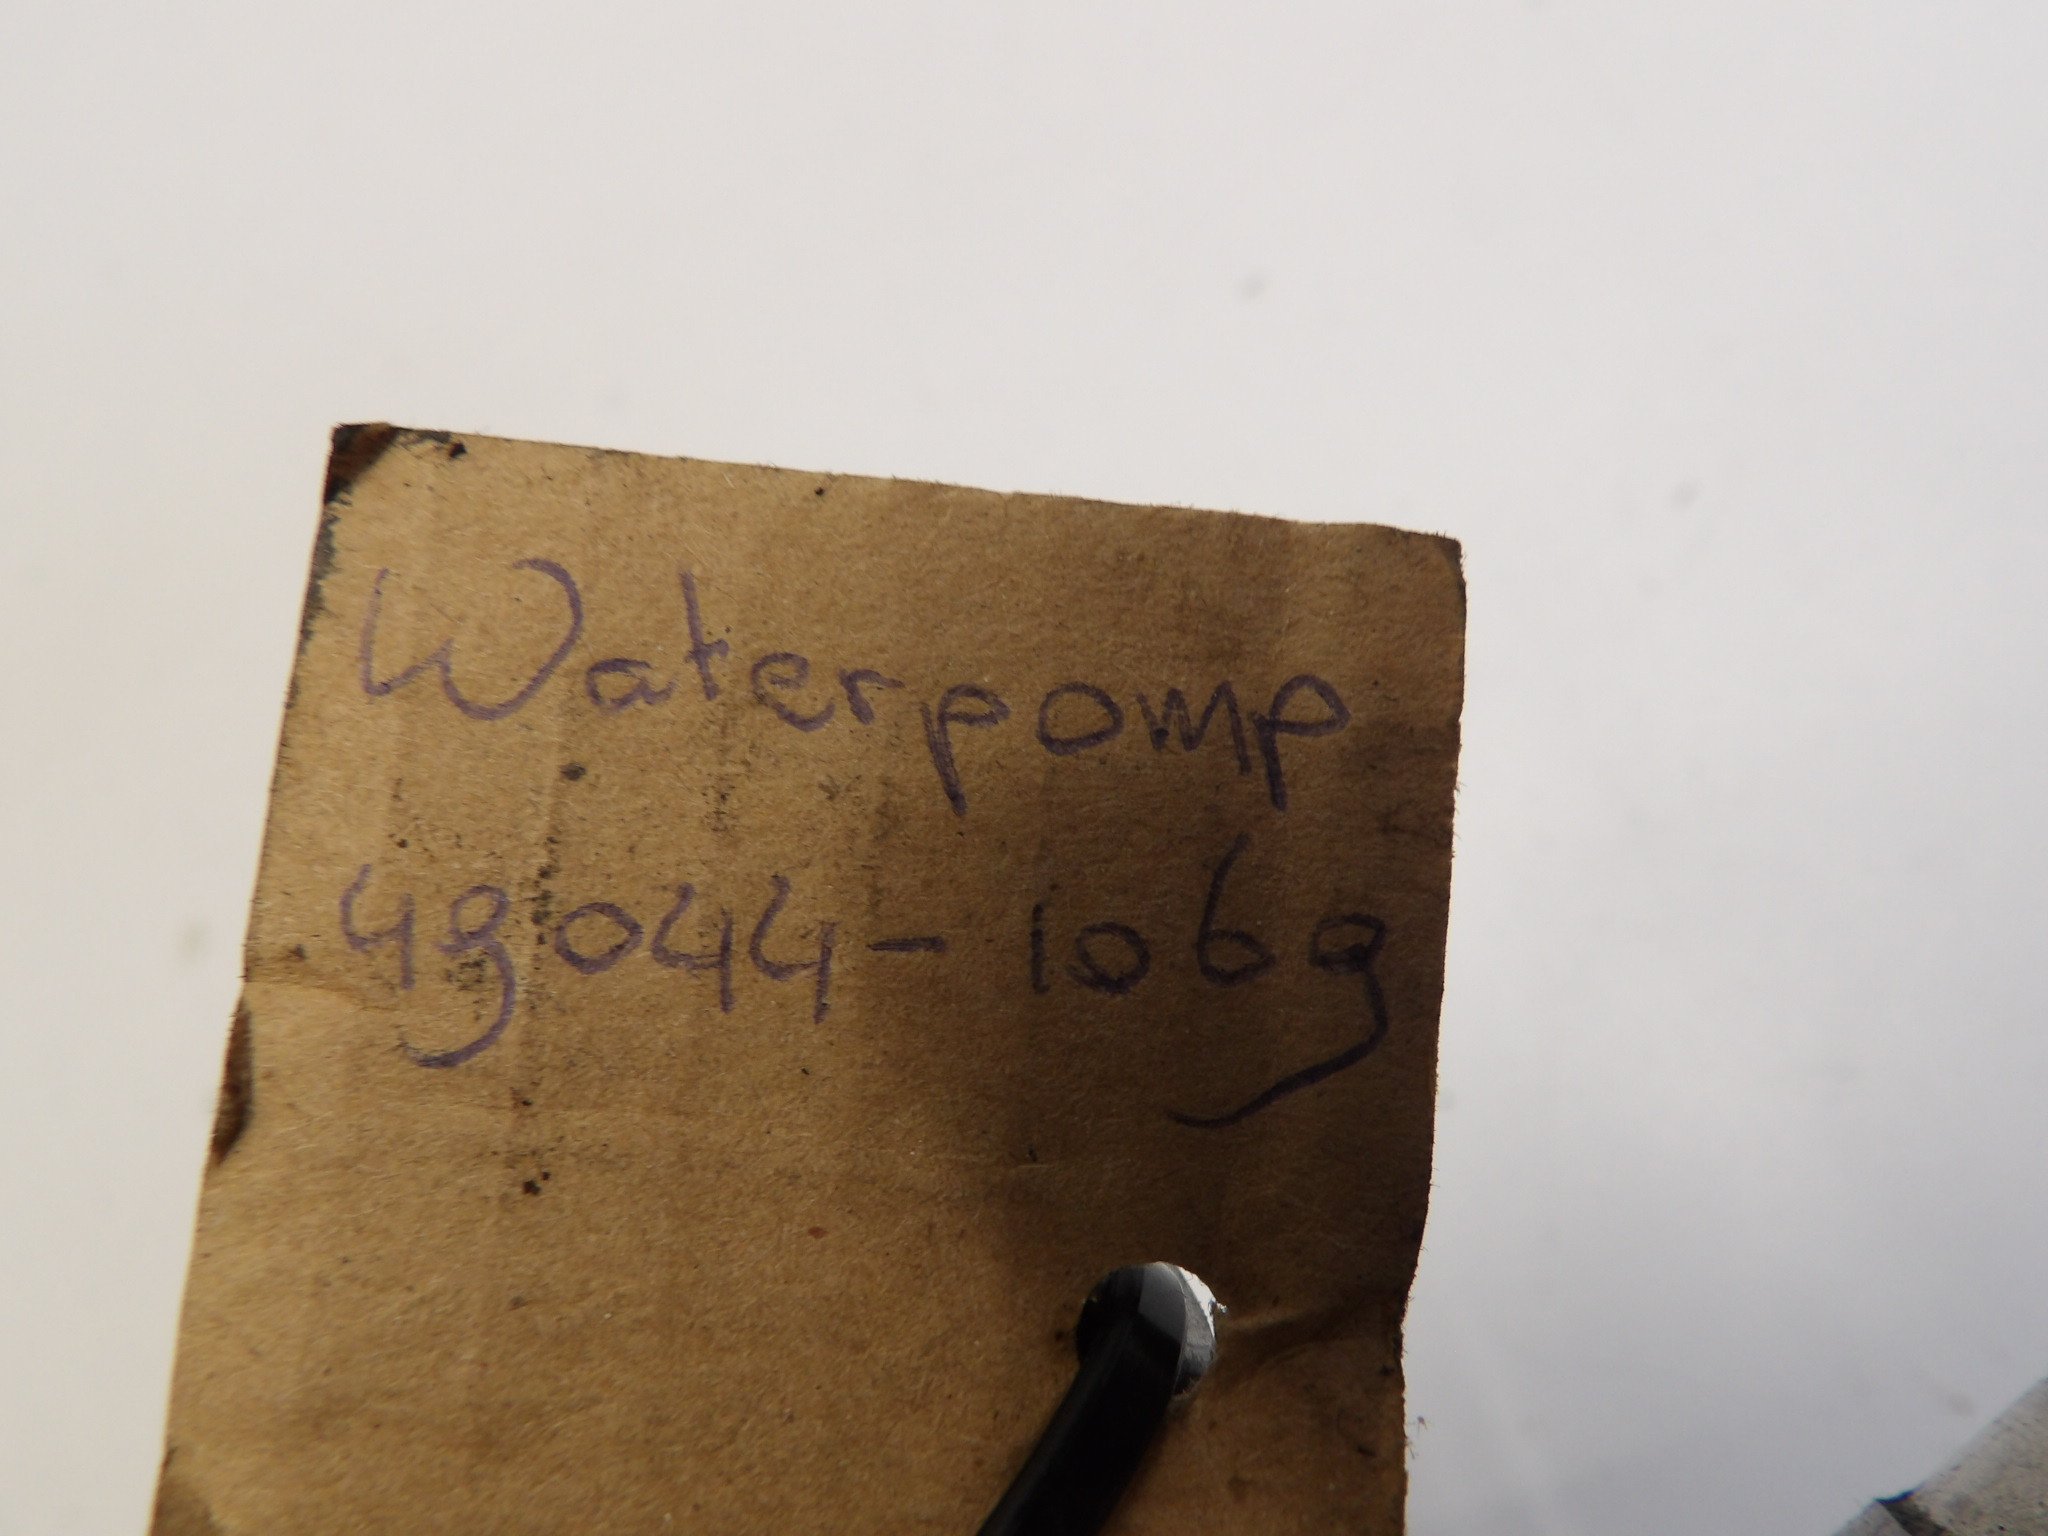 Waterpomp
49044-1069